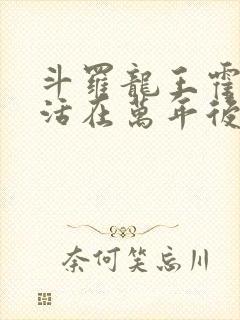 斗羅龍王霍
活在萬年後
奈何笑忘川